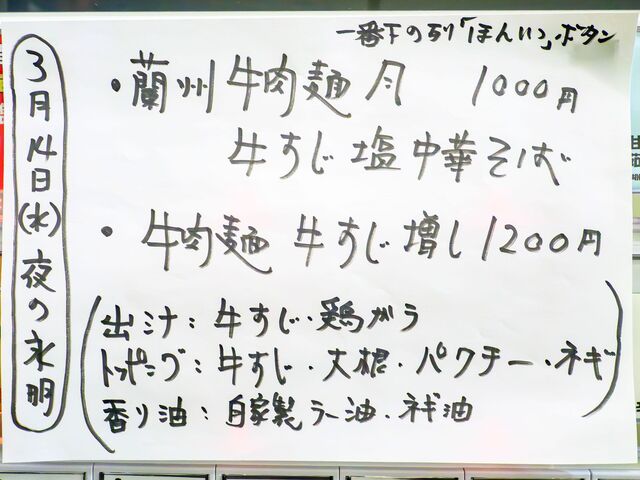 一番下の列「ほんいつ」ボタン
3月14日(水)夜の永明
・蘭州牛肉麺 1000円
牛すじ塩中華そば
・牛肉麺 牛すじ増し1200円
出汁：牛すじ・鶏ガラ
トッピング：牛すじ・大根・パクチー・ネギ
香り油：自家製ラー油・ネギ油